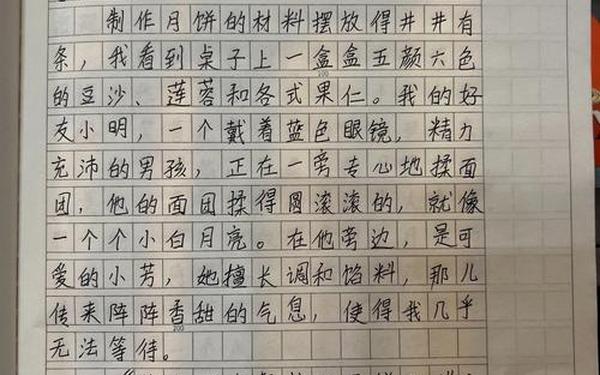 制作月饼的材料摆放得井井有
条，我看到桌子上一盒盒五颜六色
的豆沙、莲蓉和各式果仁。我的好
友小明，一个戴着蓝色眼镜，精力
充沛的男孩，正在一旁专心地揉面
团，他的面团揉得圆滚滚的，就像
一个个小白月亮。在他旁边，是可
爱的小芳，她擅长调和馅料，那儿
传来阵阵香甜的气息，使得我几乎
无法等待。